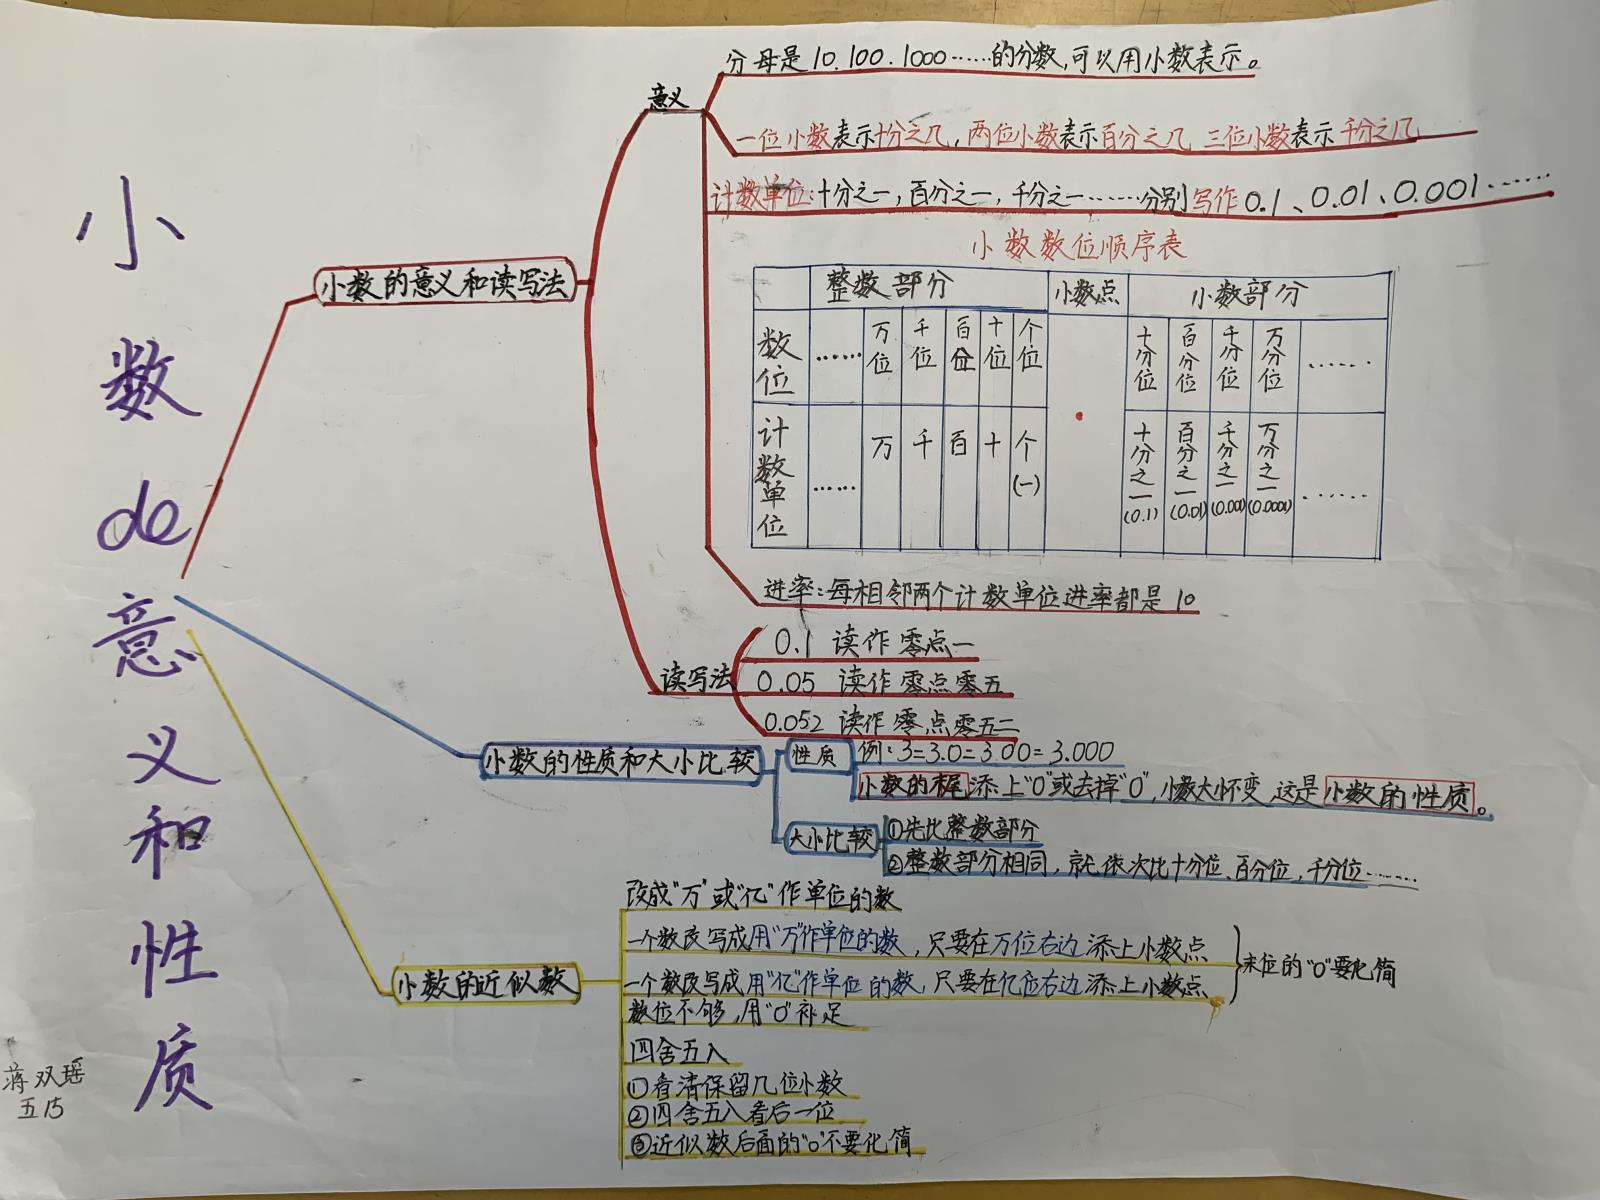 小数de意义和性质
蒋双瑶
五15
小数的意义和读写法
意义
分母是10.100.1000……的分数,可以用小数表示。
一位小数表示十分之几,两位小数表示百分之几 三位小数表示千分之几
计数单位:十分之一,百分之一,千分之一……分别写作0.1、0.01、0.001……
小数数位顺序表
整数部分 小数点 小数部分
数位 …… 万位 千位 百位 十位 个位 十分位 百分位 千分位 万分位 ……
计数单位 …… 万 千 百 十 个(一) · 十分之一(0.1) 百分之一(0.01) 千分之一(0.001) 万分之一(0.0001) ……
进率:每相邻两个计数单位进率都是10
读写法
0.1 读作 零点一
0.05 读作 零点零五
0.052 读作 零点零五二
小数的性质和大小比较
性质
例:3=3.0=3.00=3.000
小数的末尾添上"0"或去掉"0",小数大小不变 这是小数的性质。
大小比较
①先比整数部分
②整数部分相同,就依次比十分位、百分位,千分位……
小数的近似数
改成"万"或"亿"作单位的数
一个数改写成用"万"作单位的数,只要在万位右边添上小数点
一个数改写成用"亿"作单位的数,只要在亿位右边添上小数点
末位的"0"要化简
数位不够,用"0"补足
四舍五入
①看清保留几位小数
②四舍五入看后一位
③近似数后面的"0"不要化简